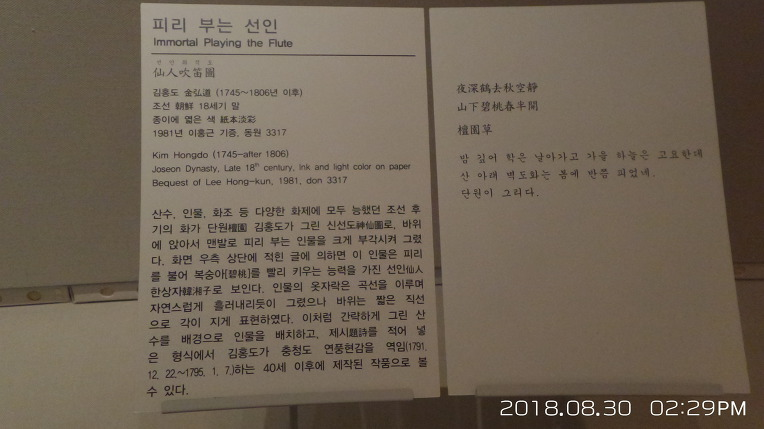 피리 부는 선인
Immortal Playing the Flute
선인취적도
仙人吹笛圖
김홍도 金弘道 (1745~1806년 이후)
조선 朝鮮 18세기 말
종이에 엷은 색 紙本淡彩
1981년 이홍근 기증, 동원 3317
Kim Hongdo (1745-after 1806)
Joseon Dynasty, Late 18th century, Ink and light color on paper
Bequest of Lee Hong-kun, 1981, don 3317
산수, 인물, 화조 등 다양한 화제에 모두 능했던 조선 후
기의 화가 단원檀園 김홍도가 그린 신선도神仙圖로, 바위
에 앉아서 맨발로 피리 부는 인물을 크게 부각시켜 그렸
다. 화면 우측 상단에 적힌 글에 의하면 이 인물은 피리
를 불어 복숭아[碧桃]를 빨리 키우는 능력을 가진 선인仙人
한상자韓湘子로 보인다. 인물의 옷자락은 곡선을 이루며
자연스럽게 흘러내리듯이 그렸으나 바위는 짧은 직선
으로 각이 지게 표현하였다. 이처럼 간략하게 그린 산
수를 배경으로 인물을 배치하고, 제시題詩를 적어 넣
은 형식에서 김홍도가 충청도 연풍현감을 역임(1791.
12. 22.~1795. 1. 7.)하는 40세 이후에 제작된 작품으로 볼
수 있다.
夜深鶴去秋空靜
山下碧桃春半開
檀園草
밤 깊어 학은 날아가고 가을 하늘은 고요한데
산 아래 벽도화는 봄에 반쯤 피었네.
단원이 그리다.
2018.08.30 02:29PM